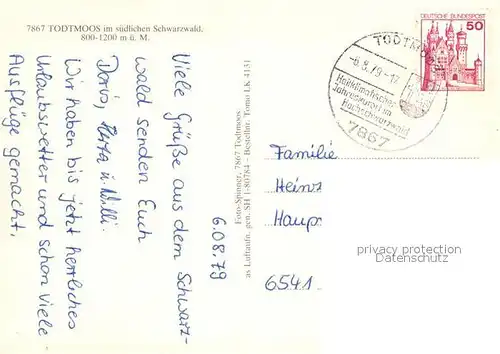 7867 TODTMOOS im südlichen Schwarzwald.
800-1200 m ü. M.
6.08.79
Viele Grüße aus dem Schwarz-
wald senden Euch
Doris, Herta u. Willi.
Wir haben bis jetzt herrliches
Urlaubswetter und schon viele
Ausflüge gemacht.
Foto-Spinner, 7867 Todtmoos
as Luftaufn. gen. SH 1-80784 - Bestellnr. Tomo LK 4131
TODTMOOS
-6.8.79-17
Heilklimatischer
Jahreskurort im
Hochschwarzwald
7867
DEUTSCHE BUNDESPOST
50
Familie
Heinz
Haup
6541
privacy protection
Datenschutz